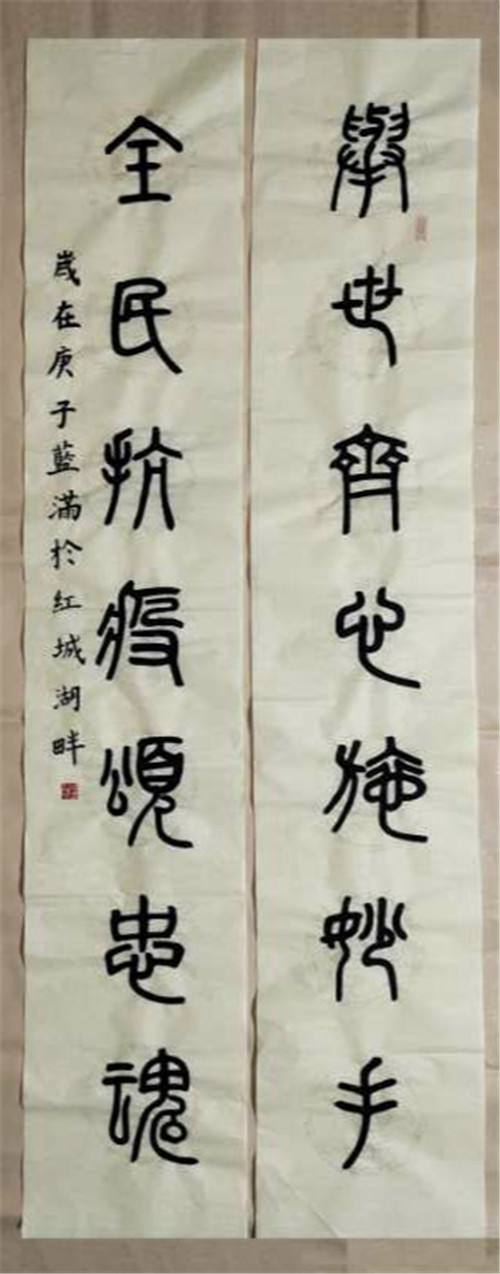 舉世齊心施妙手
全民抗疫頌忠魂
歲在庚子藍滿於紅城湖畔